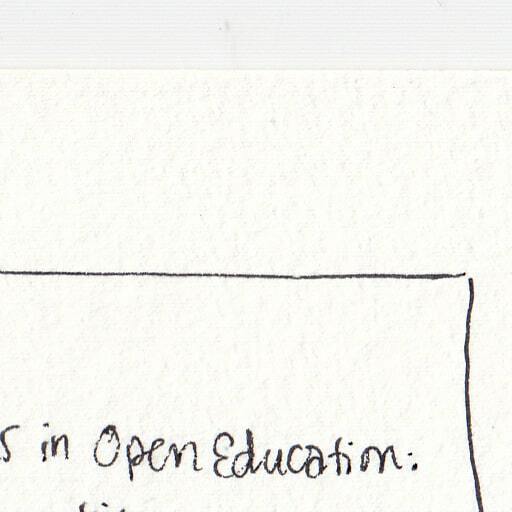 s in Open Education: